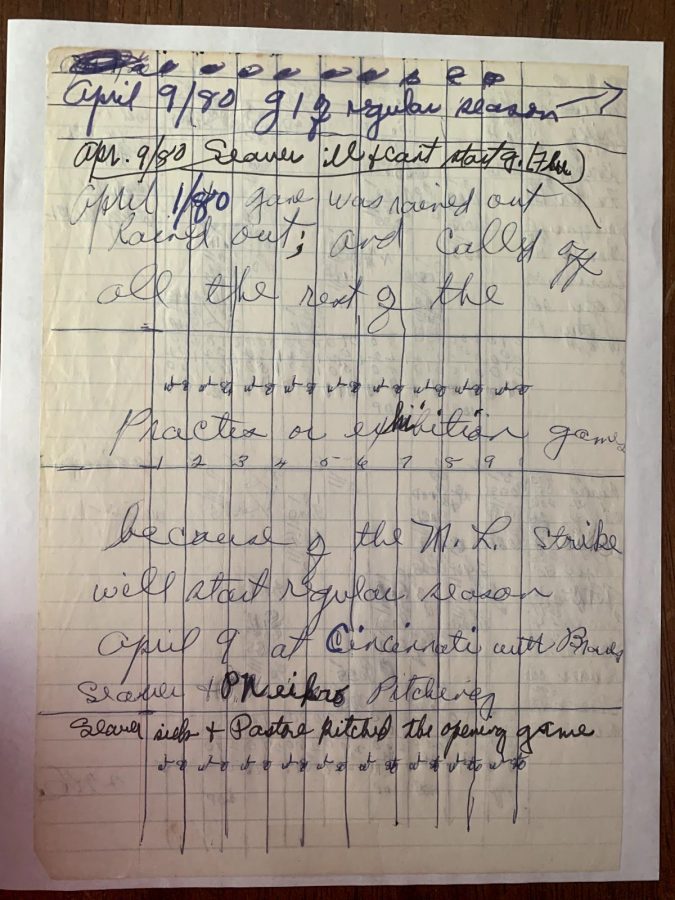 April 9/80 g 1 of regular season
Apr. 9/80 Seaver ill + cant start g. (Flu)
April 1/80 game was rained out
Rained out; and Called off
all the rest of the
Practes or exhibition games
1 2 3 4 5 6 7 8 9
because of the M. L. Strike
will start regular season
April 9 at Cincinnati with Braves
Seaver + P Neikro Pitching
Seaver sick + Pastore pitched the opening game